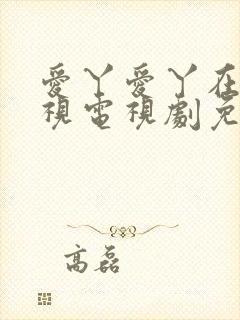 愛丫愛丫在
視電視劇免
高磊